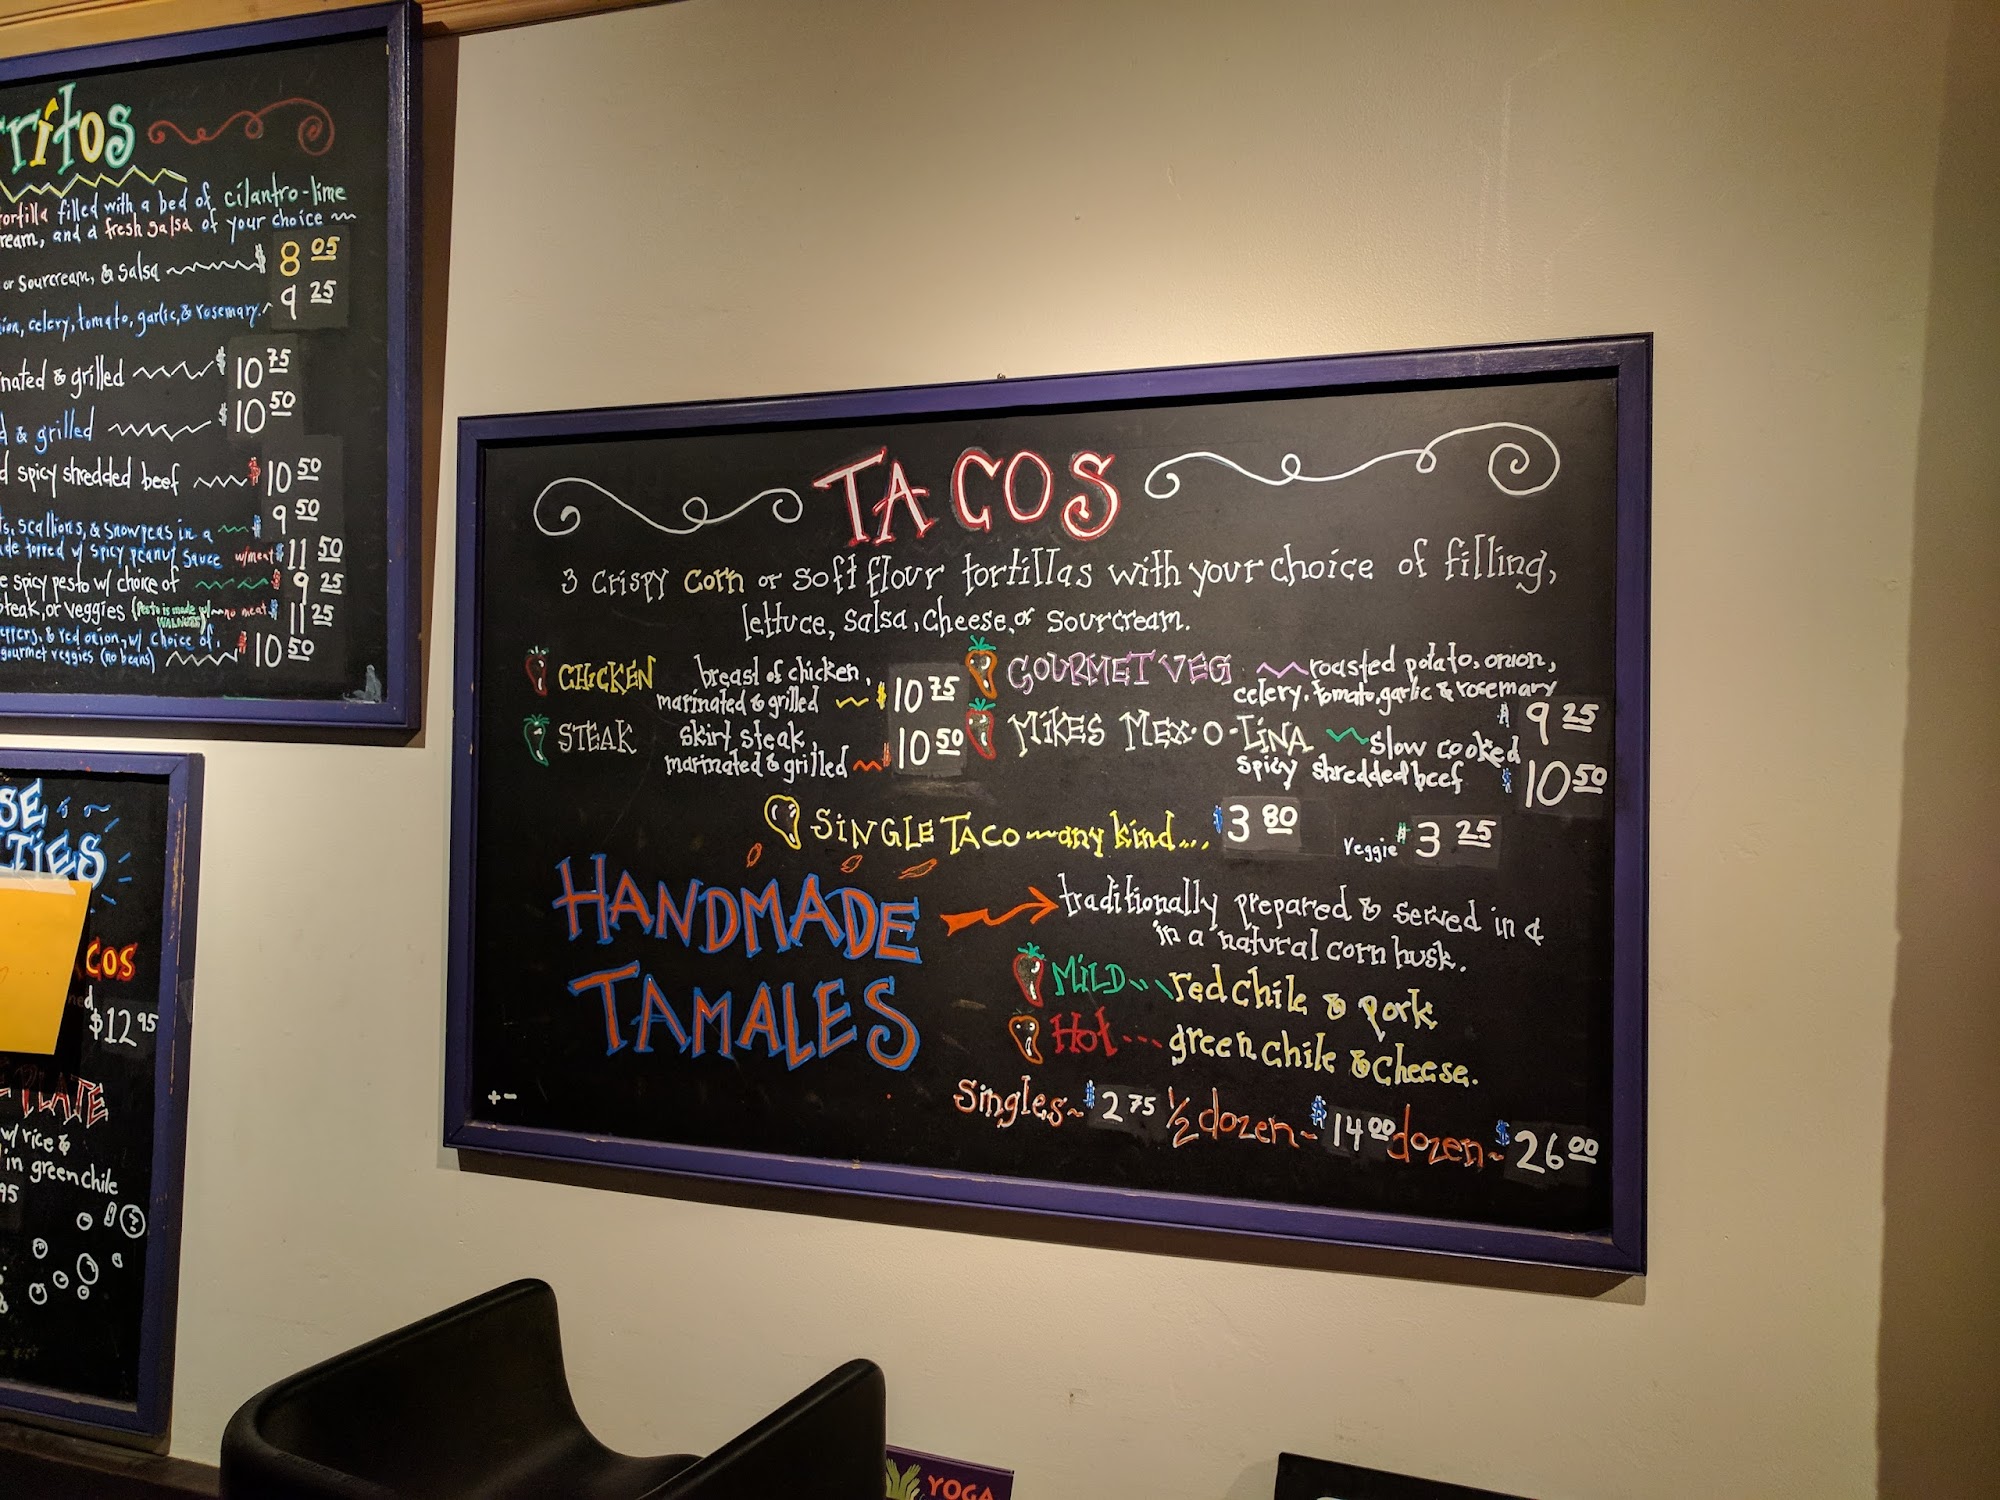 ritos
tortilla filled with a bed of cilantro-lime
ream, and a fresh salsa of your choice
or sourcream, & salsa $ 8 05
ion, celery, tomato, garlic, & rosemary. 9 25
nated & grilled $ 10 75
d & grilled $ 10 50
d spicy shredded beef $ 10 50
ts, scallions, & snowpeas in a $ 9 50
de topped w/ spicy peanut sauce w/meat $ 11 50
e spicy pesto w/ choice of $ 9 25
steak, or veggies (Pesto is made w/ WALNUTS) no meat $ 11 25
eppers, & red onion, w/ choice of
gourmet veggies (no beans) $ 10 50
SE
LTIES
COS
ned
$12 95
E PLATE
w/ rice &
in green chile
95
TACOS
3 crispy corn or soft flour tortillas with your choice of filling,
lettuce, salsa, cheese, or sourcream.
CHICKEN breast of chicken,
marinated & grilled $ 10 75
STEAK skirt steak,
marinated & grilled $ 10 50
GOURMET VEG roasted potato, onion,
celery, tomato, garlic & rosemary
$ 9 25
MIKES MEX-O-LINA slow cooked
spicy shredded beef $ 10 50
SINGLE TACO any kind... $ 3 80 Veggie $ 3 25
HANDMADE
TAMALES
traditionally prepared & served in a
in a natural corn husk.
MILD... red chile & pork
Hot... green chile & cheese.
Singles~ $ 2 75 1/2 dozen~ $ 14 00 dozen~ $ 26 00
+-
YOGA